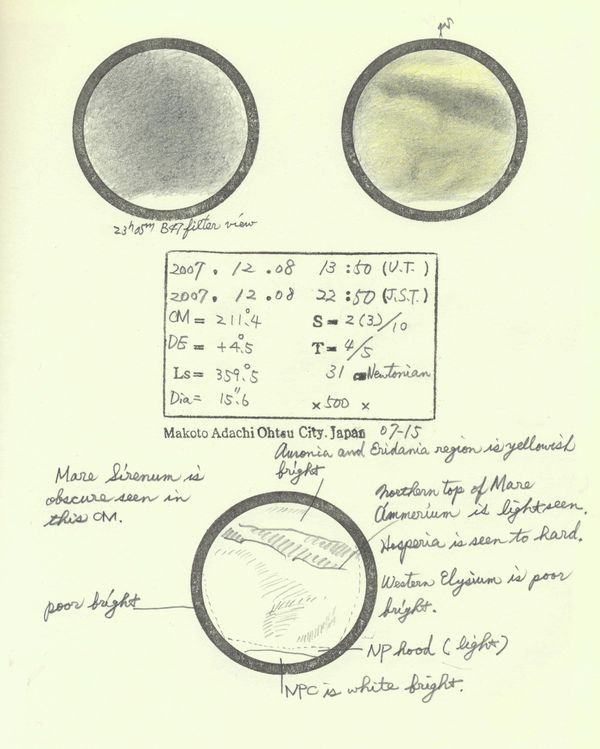 23ʰ05ᵐ B47 filter view
2007. 12. 08 13:50 (U.T.)
2007. 12. 08 22:50 (J.S.T.)
CM = 211.°4 S = 2(3)/10
DE = +4.°5 T = 4/5
Ls = 359.°5 31 cm Newtonian
Dia = 15."6 × 500 ×
Makoto Adachi Ohtsu City. Japan 07-15
Ausonia and Eridania region is yellowish
bright
Mare Sirenum is
obscure seen in
this CM.
northern top of Mare
Ammerium is light seen.
Hesperia is seen to hard.
Western Elysium is poor
bright.
poor bright
NP hood (light)
NPC is white bright.